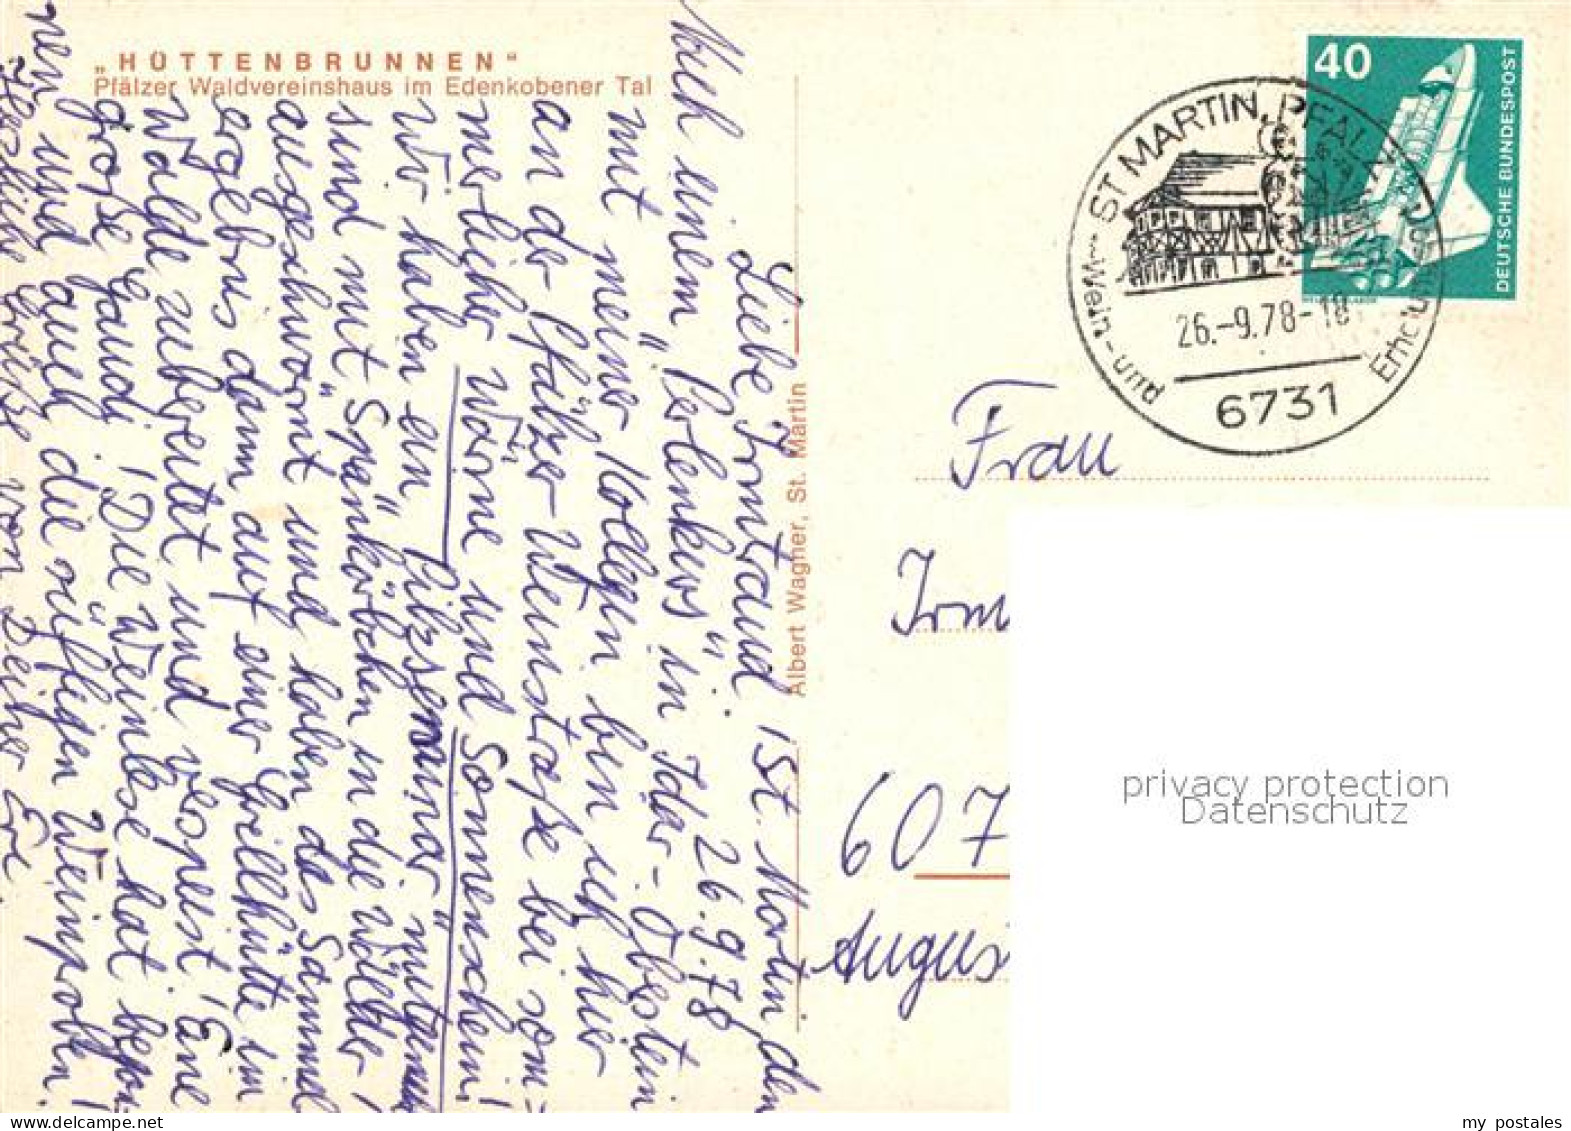 „HÜTTENBRUNNEN“
Pfälzer Waldvereinshaus im Edenkobener Tal
Albert Wagner, St. Martin
40
DEUTSCHE BUNDESPOST
ST MARTIN, PFALZ
Wein- und
Erholungs
26.-9.78-18
6731
St. Martin, den
Liebe Irmtraud! 26.9.78
Nach einem "Perlenkurs" in Idar-Oberstein
mit meiner Kollegin bin ich hier
an der Pfälzer Weinstraße bei som-
merlicher Wärme und Sonnenschein!
Wir haben ein "Pilzseminar" mitgemacht
sind mit "Spankörbchen in die Wälder
ausgeschwärmt und haben das Sammel
ergebnis dann auf einer Grillhütte im
Walde zubereitet und verspeist! Eine
große Gaudi! Die Weinlese hat begon
nen und auch die süffigen Weinproben!
Herzliche Grüße von Deiner
Frau
Irm
607
Augus
privacy protection
Datenschutz
delcampe.net
my_postales